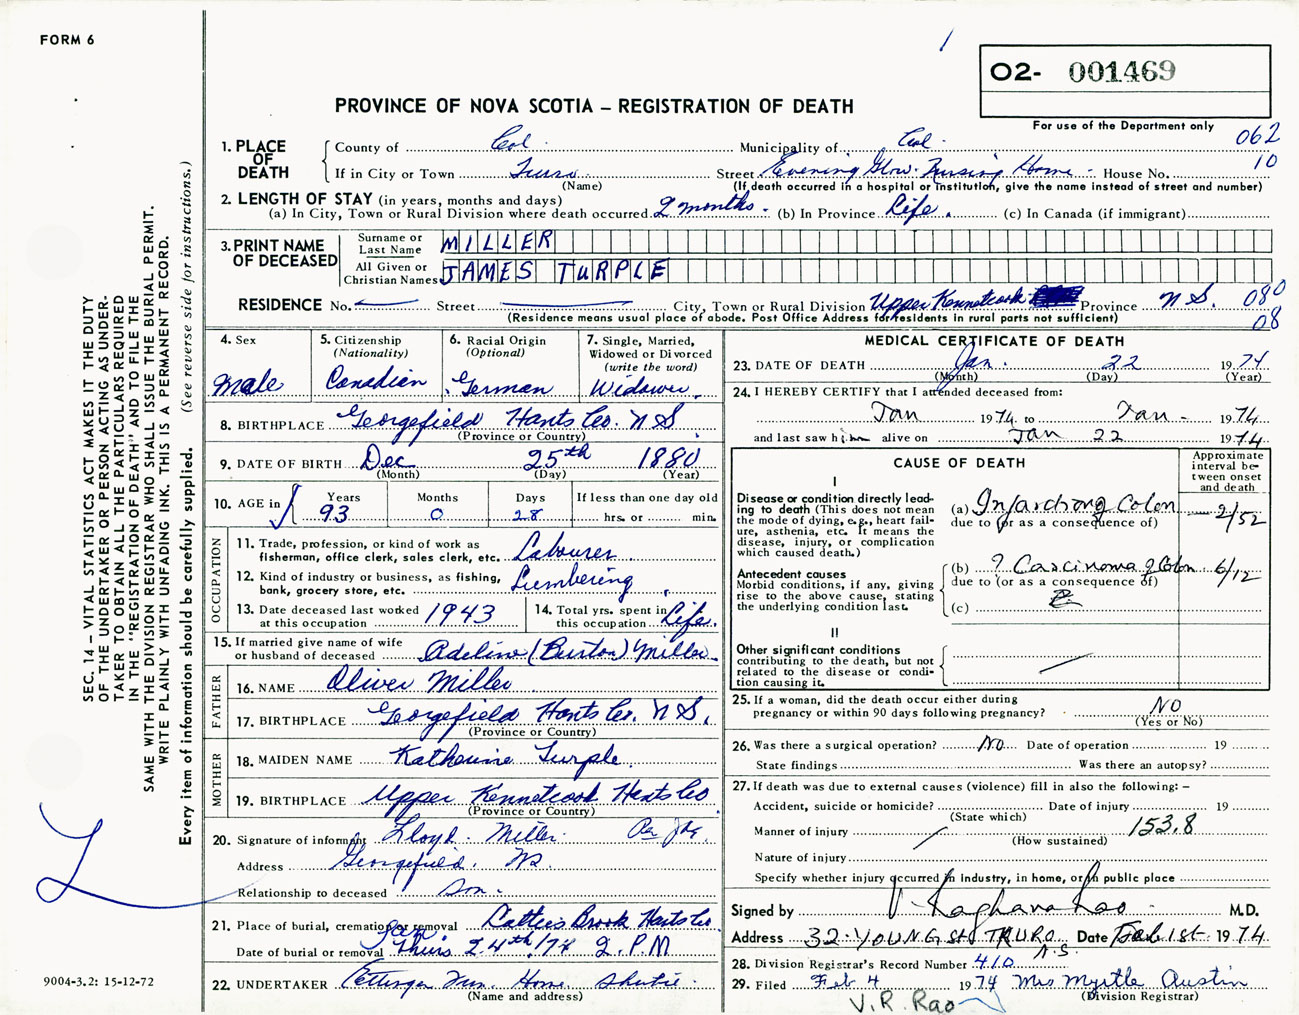 FORM 6
1
O2- 001469
PROVINCE OF NOVA SCOTIA – REGISTRATION OF DEATH
For use of the Department only
062
10
1. PLACE OF DEATH
County of Col. Municipality of Col.
If in City or Town Truro Street Evening Glow Nursing Home House No.
(Name) (If death occurred in a hospital or institution, give the name instead of street and number)
2. LENGTH OF STAY (in years, months and days)
(a) In City, Town or Rural Division where death occurred 2 months. (b) In Province Life. (c) In Canada (if immigrant)
3. PRINT NAME OF DECEASED
Surname or Last Name MILLER
All Given or Christian Names JAMES TURPLE
RESIDENCE No. Street City, Town or Rural Division Upper Kennetcook Province N S. 080
(Residence means usual place of abode. Post Office Address for residents in rural parts not sufficient) 08
4. Sex Male
5. Citizenship (Nationality) Canadian
6. Racial Origin (Optional) German
7. Single, Married, Widowed or Divorced (write the word) Widower.
8. BIRTHPLACE Georgefield Hants Co. N S.
(Province or Country)
9. DATE OF BIRTH Dec 25th 1880
(Month) (Day) (Year)
10. AGE in Years 93 Months 0 Days 28 If less than one day old hrs. or min.
OCCUPATION
11. Trade, profession, or kind of work as fisherman, office clerk, sales clerk, etc. Labourer
12. Kind of industry or business, as fishing, bank, grocery store, etc. Lumbering
13. Date deceased last worked at this occupation 1943
14. Total yrs. spent in this occupation Life.
15. If married give name of wife or husband of deceased Adeline (Burton) Miller
FATHER
16. NAME Oliver Miller
17. BIRTHPLACE Georgefield Hants Co. N S.
(Province or Country)
MOTHER
18. MAIDEN NAME Katherine Turple.
19. BIRTHPLACE Upper Kennetcook Hants Co
(Province or Country)
20. Signature of informant Lloyd Miller Per
Address Georgefield. NS.
Relationship to deceased Son.
21. Place of burial, cremation or removal Hants Co
Date of burial or removal Jan Thurs 24th/74 2. P.M
22. UNDERTAKER Ettinger Fun. Home Shubie.
(Name and address)
MEDICAL CERTIFICATE OF DEATH
23. DATE OF DEATH Jan. 22 1974
(Month) (Day) (Year)
24. I HEREBY CERTIFY that I attended deceased from:
Jan 1974 to Jan - 1974
and last saw him alive on Jan 22 1974
CAUSE OF DEATH
Approximate interval between onset and death
I
Disease or condition directly leading to death (This does not mean the mode of dying, e.g., heart failure, asthenia, etc. It means the disease, injury, or complication which caused death.)
(a) Infarctiong Colon 2/52
due to (or as a consequence of)
Antecedent causes
Morbid conditions, if any, giving rise to the above cause, stating the underlying condition last.
(b) ? Carcinoma of Colon 6/12
due to (or as a consequence of)
(c)
II
Other significant conditions contributing to the death, but not related to the disease or condition causing it.
25. If a woman, did the death occur either during pregnancy or within 90 days following pregnancy? NO
(Yes or No)
26. Was there a surgical operation? No Date of operation 19
State findings Was there an autopsy?
27. If death was due to external causes (violence) fill in also the following: –
Accident, suicide or homicide? Date of injury 19
(State which)
Manner of injury 153.8
(How sustained)
Nature of injury
Specify whether injury occurred in industry, in home, or in public place
Signed by V. Raghava Rao M.D.
Address 32. YOUNG St TRURO N.S. Date Feb 1st 1974
28. Division Registrar's Record Number 410
29. Filed Feb 4 1974 Mrs Myrtle Austin
(Division Registrar)
V. R. Rao
SEC. 14 – VITAL STATISTICS ACT MAKES IT THE DUTY
OF THE UNDERTAKER OR PERSON ACTING AS UNDER-
TAKER TO OBTAIN ALL THE PARTICULARS REQUIRED
IN THE "REGISTRATION OF DEATH" AND TO FILE THE
SAME WITH THE DIVISION REGISTRAR WHO SHALL ISSUE THE BURIAL PERMIT.
WRITE PLAINLY WITH UNFADING INK. THIS IS A PERMANENT RECORD.
Every item of information should be carefully supplied. (See reverse side for instructions.)
9004-3.2: 15-12-72